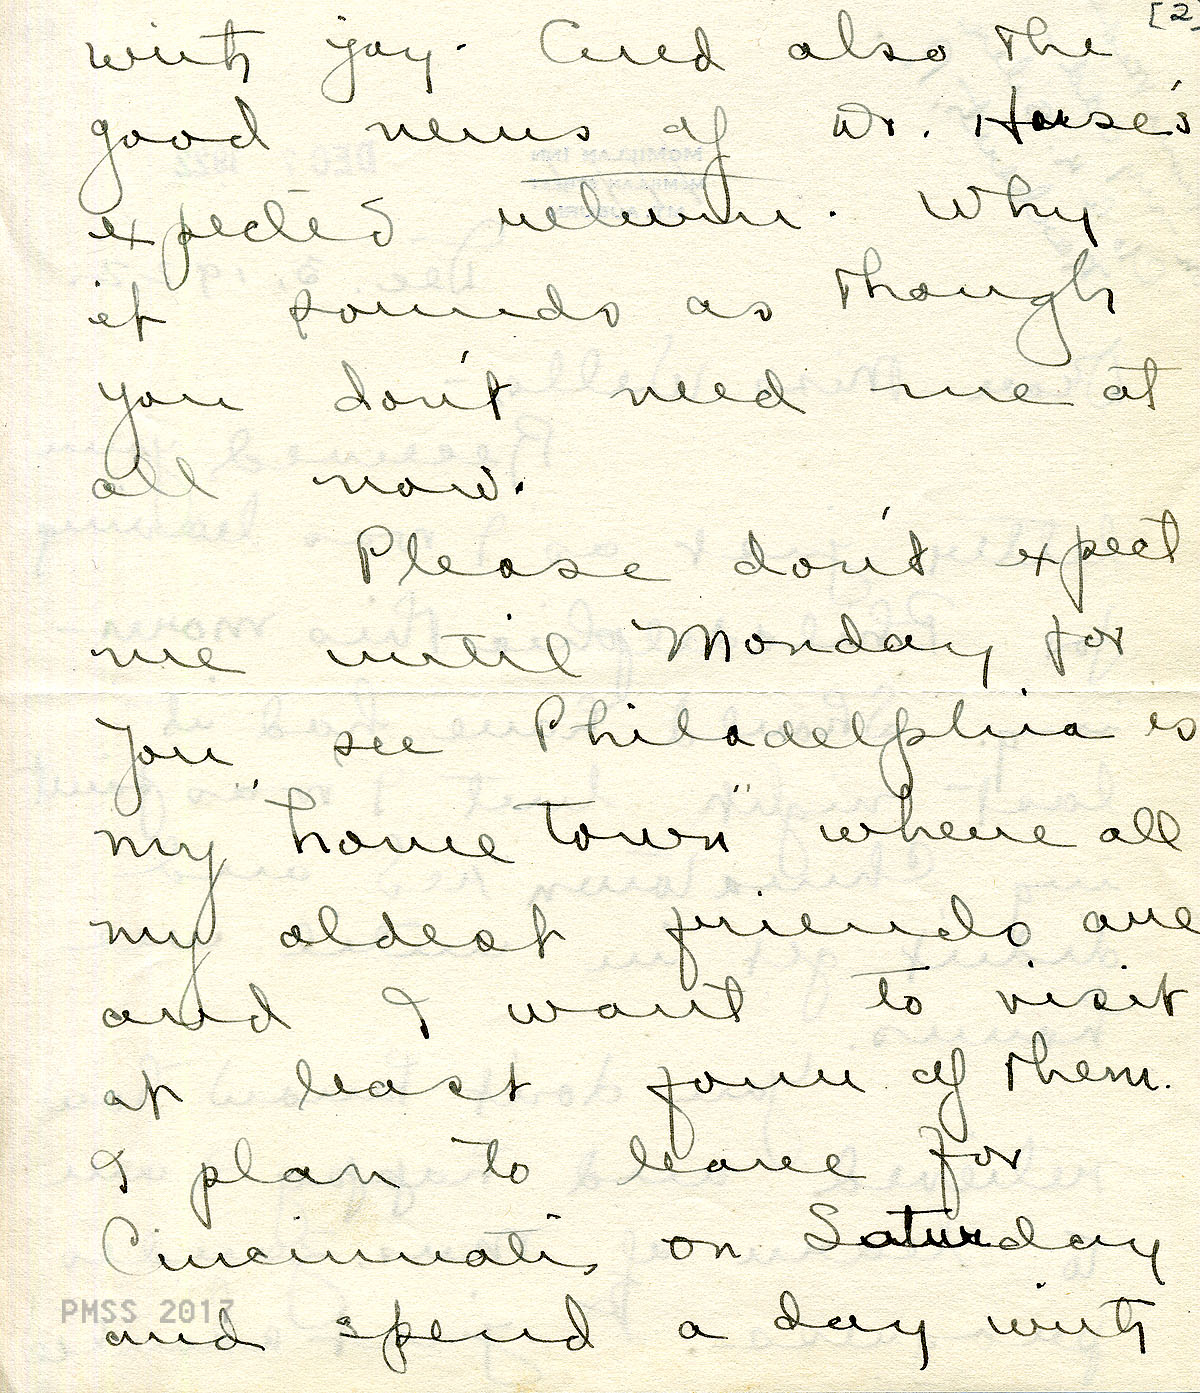 [2]
with joy. And also the
good news of Dr. House's
expected return. Why
it sounds as though
you don't need me at
all now.
Please don't expect
me until Monday for
you see Philadelphia is
my "home town" where all
my oldest friends are
and I want to visit
at least four of them.
I plan to leave for
Cincinnati on Saturday
PMSS 2017
and spend a day with